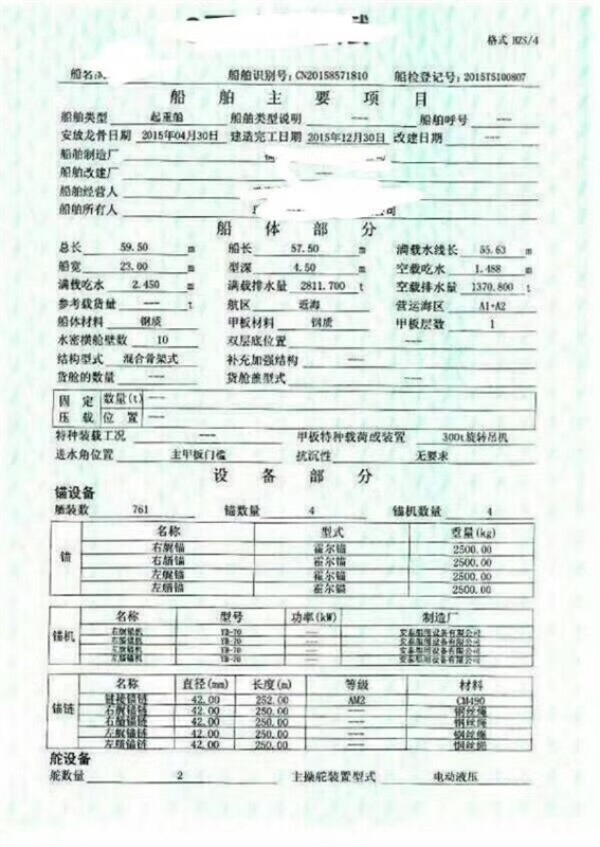 格式 HZS/4
船名: 船舶识别号:CN20158571810 船检登记号:2015T5100807
船舶主要项目
船舶类型 起重船 船舶类型说明 --- 船舶呼号 ---
安放龙骨日期 2015年04月30日 建造完工日期 2015年12月30日 改建日期 ---
船舶制造厂
船舶改建厂 ---
船舶经营人
船舶所有人 公司
船体部分
总长 59.50 m 船长 57.50 m 满载水线长 55.63 m
船宽 23.00 m 型深 4.50 m 空载吃水 1.488 m
满载吃水 2.450 m 满载排水量 2811.700 t 空载排水量 1370.800 t
参考载货量 --- t 航区 近海 营运海区 A1+A2
船体材料 钢质 甲板材料 钢质 甲板层数 1
水密横舱壁数 10 双层底位置 ---
结构型式 混合骨架式 补充加强结构 ---
货舱的数量 --- 货舱盖型式 ---
固定 数量(t) ---
压载 位置 ---
特种装载工况 --- 甲板特种载荷或装置 300t旋转吊机
进水角位置 主甲板门槛 抗沉性 无要求
设备部分
锚设备
舾装数 761 锚数量 4 锚机数量 4
名称 型式 重量(kg)
锚
右艉锚 霍尔锚 2500.00
右艏锚 霍尔锚 2500.00
左艉锚 霍尔锚 2500.00
左艏锚 霍尔锚 2500.00
名称 型号 功率(kW) 制造厂
锚机
右艉锚机 YB-70 ---
右艏锚机 YB-70 ---
左艉锚机 YB-70 ---
左艏锚机 YB-70 ---
名称 直径(mm) 长度(m) 等级 材料
锚链
链接锚链 42.00 252.00 AM2 CM490
右艉锚链 42.00 250.00 --- 钢丝绳
右艏锚链 42.00 250.00 --- 钢丝绳
左艉锚链 42.00 250.00 --- 钢丝绳
左艏锚链 42.00 250.00 --- 钢丝绳
舵设备
舵数量 2 主操舵装置型式 电动液压